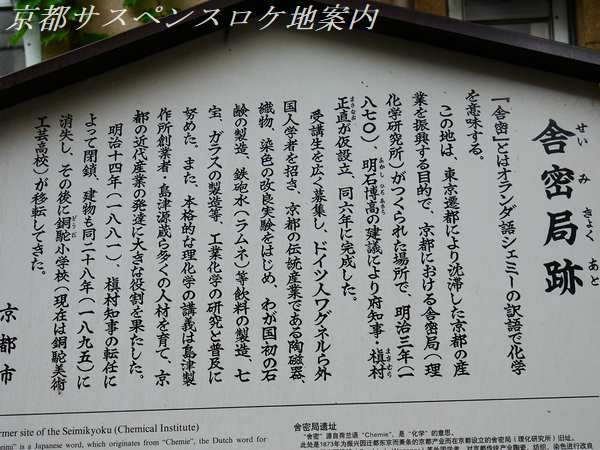 京都サスペンスロケ地案内
舎密局跡
せいみきょくあと
『舎密』とはオランダ語シェミーの訳語で化学
を意味する。
この地は、東京遷都により沈滞した京都の産
業を振興する目的で、京都における舎密局（理
化学研究所）がつくられた場所で、明治三年（一
八七〇）、明石博高の建議により府知事・槇村
正直が仮設立、同六年に完成した。
受講生を広く募集し、ドイツ人ワグネルら外
国人学者を招き、京都の伝統産業である陶磁器、
織物、染色の改良実験をはじめ、わが国初の石
鹸の製造、鉄砲水（ラムネ）等飲料の製造、七
宝、ガラスの製造等、工業化学の研究と普及に
努めた。また、本格的な理化学の講義は島津製
作所創業者・島津源蔵ら多くの人材を育て、京
都の近代産業の発達に大きな役割を果たした。
明治十四年（一八八一）、槇村知事の転任に
よって閉鎖、建物も同二十八年（一八九五）に
消失し、その後に銅駝小学校（現在は銅駝美術
工芸高校）が移転してきた。
京都市
rmer site of the Seimikyoku (Chemical Institute)
is a Japanese word, which originates from “Chemie”, the Dutch word for
舍密局遗址
“舍密”源自荷兰语“Chemie”，是“化学”的意思。